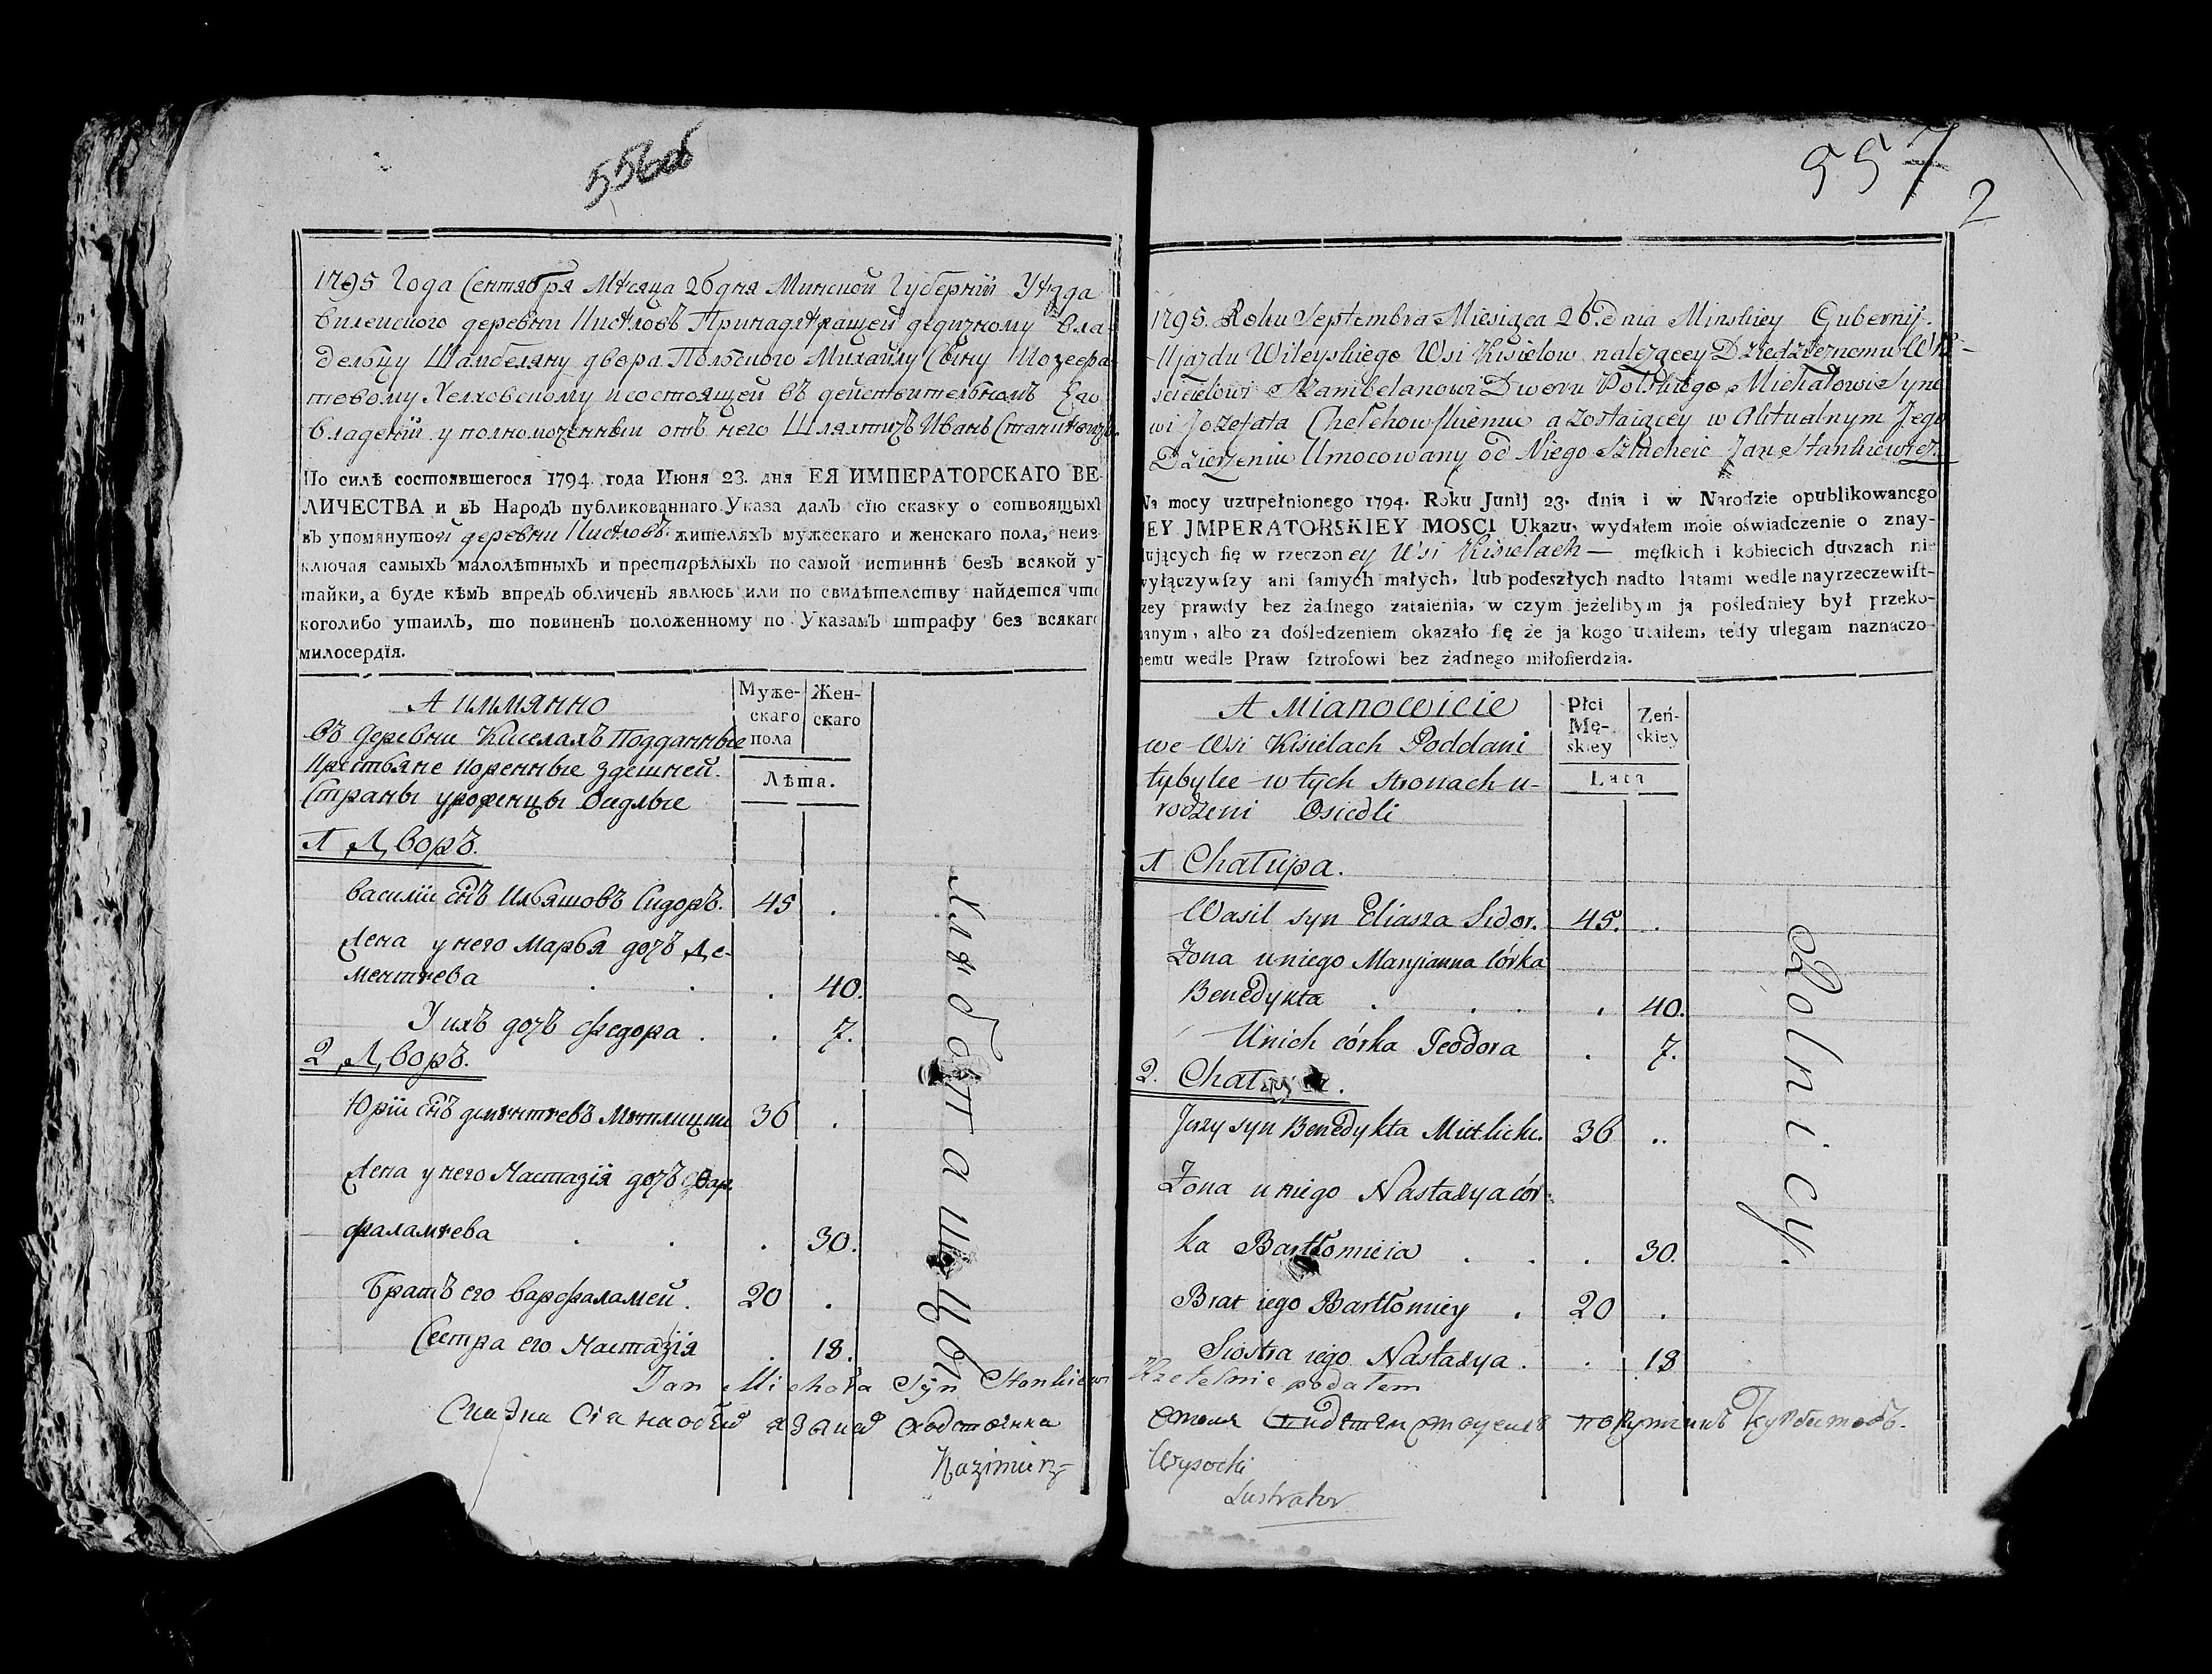 556об
1795 Года Сентября Мѣсяца 26 дня Минской Губерніи Уѣзда
Вилейского деревни Кисѣловъ Принадлѣжащей дедичному Вла-
дельцу Шамбеляну двора Польского Михайлу Сыну Иозефа-
товому Хелховскому и состоящей въ действительномъ Его
Владеніи уполномоченный отъ него Шляхтичъ Иванъ Станкѣвичъ
По силѣ состоявшегося 1794 года Июня 23. дня ЕЯ ИМПЕРАТОРСКАГО ВЕ-
ЛИЧЕСТВА и въ Народъ публикованнаго Указа далъ сїю сказку о сотвоящыхъ
въ упомянутой деревни Кисѣловъ жителяхъ мужескаго и женскаго пола, неиз-
ключая самыхъ малолѣтныхъ и престарѣлыхъ по самой истиннѣ безъ всякой у-
тайки, а буде кѣмъ впредъ обличенъ явлюсь или по свидѣтелству найдется что
коголибо утаилъ, то повиненъ положенному по Указамъ штрафу без всякаго
милосердїя.
А иммянно
Муже-скаго пола
Жен-скаго
въ Деревни Киселахъ Подданные
Крестьяне коренные здешней
Страны уроженцы Оседлые
Лѣта.
1 Дворъ.
Василій сынъ Ильяшовъ Сидоръ. 45 .
Жена у него Марья дочъ Де-
ментѣева . . . 40.
У ихъ дочъ Федора . . 7.
2 Дворъ.
Юрій сынъ дементѣевъ Мѣтлицки 36 .
Жена у него Настазія дочъ Вар-
фаламѣева . . . 30.
Братъ его Варфаламей. 20 .
Сестра его Настазія . 18.
Хлѣбопашьцы
Jan Michała Syn Stankiewi
Сказка Сія на обѣи
Kazimierz
557
2
1795. Roku Septembra Miesiąca 26. dnia Minskiey Gubernij.
Ujazdu Wileyskiego Wsi Kisielow należącey Dziedzicznemu Wła-
scicielowi Szambelanowi Dworu Polskiego Michałowi Syno
wi Jozefata Chełchowskiemu a zostaiącey w Aktualnym Jego
Dzierzeniu Umocowany od Niego Szlachcic Jan Stankiewicz
Na mocy uzupełnionego 1794. Roku Junij 23. dnia i w Narodzie opublikowanego
JEY JMPERATORSKIEY MOSCI Ukazu, wydałem moie oświadczenie o znay-
dujących się w rzeczoney Wsi Kisielach — męſkich i kobiecich duszach nie
wyłączywſzy ani ſamych małych, lub podeszłych nadto latami wedle nayrzeczewiſt-
ſzey prawdy bez żadnego zataienia, w czym jeżelibym ja poſledniey był przeko-
nanym, albo za dośledzeniem okazało ſię że ja kogo utaiłem, tedy ulegam naznaczo-
nemu wedle Praw ſztrofowi bez żadnego miłoſierdzia.
A Mianowicie
Płci Mę-skiey
Zeń-skiey
we Wsi Kisielach Poddani
tybylce w tych stronach u-
rodzeni Osiedli
Lata
1 Chałupa.
Wasil syn Eliasza Sidor. 45. .
Zona u niego Maryianna córka
Benedykta . . . 40.
U nich córka Teodora . 7.
2. Chałupa.
Jerzy syn Benedykta Mietlicki. 36 ..
Zona u niego Nastazya cór-
ka Bartłomieia . . . 30.
Brat iego Bartłomiey . 20 .
Siostra iego Nastazya . . 18
Rolnicy.
Rzetelnie podałem
порутчикъ
Wysocki
Lustrator